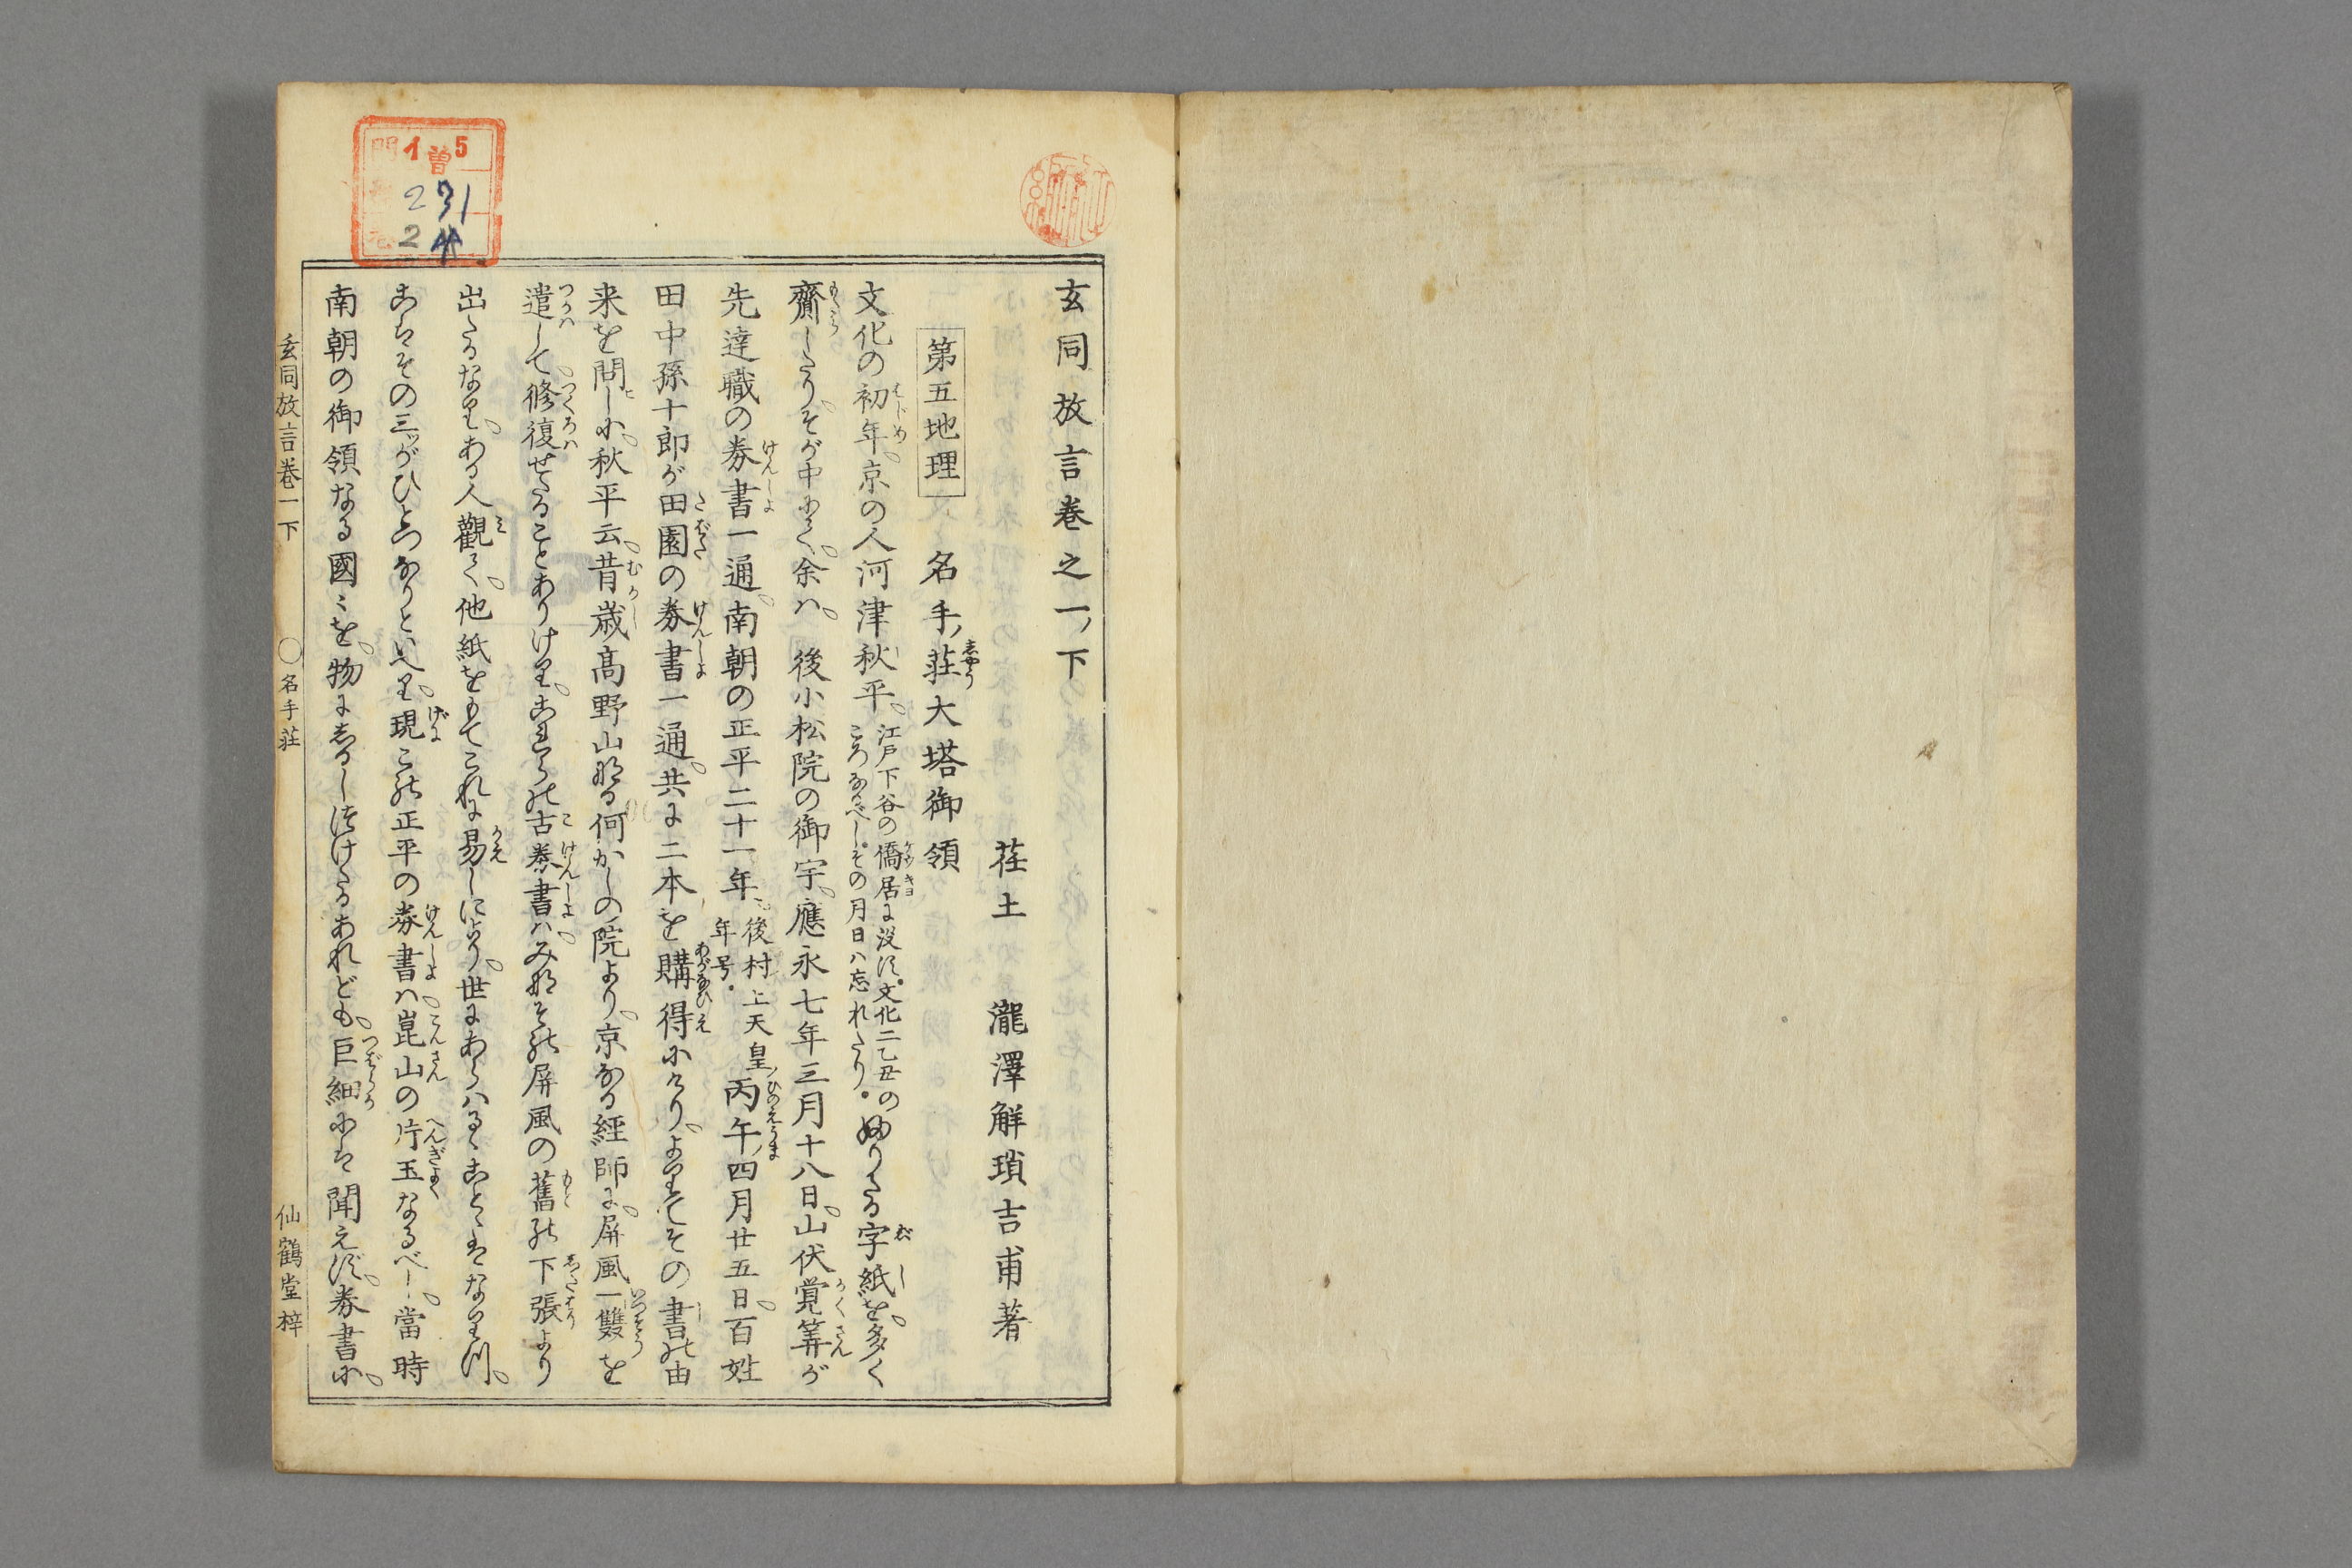 玄同放言巻之一ノ下
荘土　瀧澤解瑣吉甫著
第五地理　名手ノ荘大塔御領
文化の初年、京の人河津秋平、江戸下谷の僑居に没す。文化二乙丑のころなるべし。その月日ハ忘れたり。ふりたる字紙を、多く
齎したり、そが中にて、余ハ、後小松院の御宇、應永七年三月十八日、山伏覚算が
先達職の券書一通、南朝の正平二十一年、後村上天皇ノ年号。丙午四月廿五日、百姓
田中孫十郎が田園の券書一通、共に二本を購得にけり、よりてその書の由
来を問しに、秋平云、昔歳高野山なる何がしの院より、京なる経師に、屏風一雙を
遣して、修復せたることありけり、これらの古券書ハ、みなその屏風の舊の下張より
出たるなり、ある人觀て、他紙をもてこれに易しにより、世にあらハるゝことゝはなりつ、
こはその三ッがひとつなりといへり、現この正平の券書ハ、崑山の片玉なるべし、當時
南朝の御領なる國ミを、物にしるしつけたるあれども、巨細には聞えず、券書に、
玄同放言巻一下　〇名手荘　仙鶴堂梓
門 1 曽 5
231
2